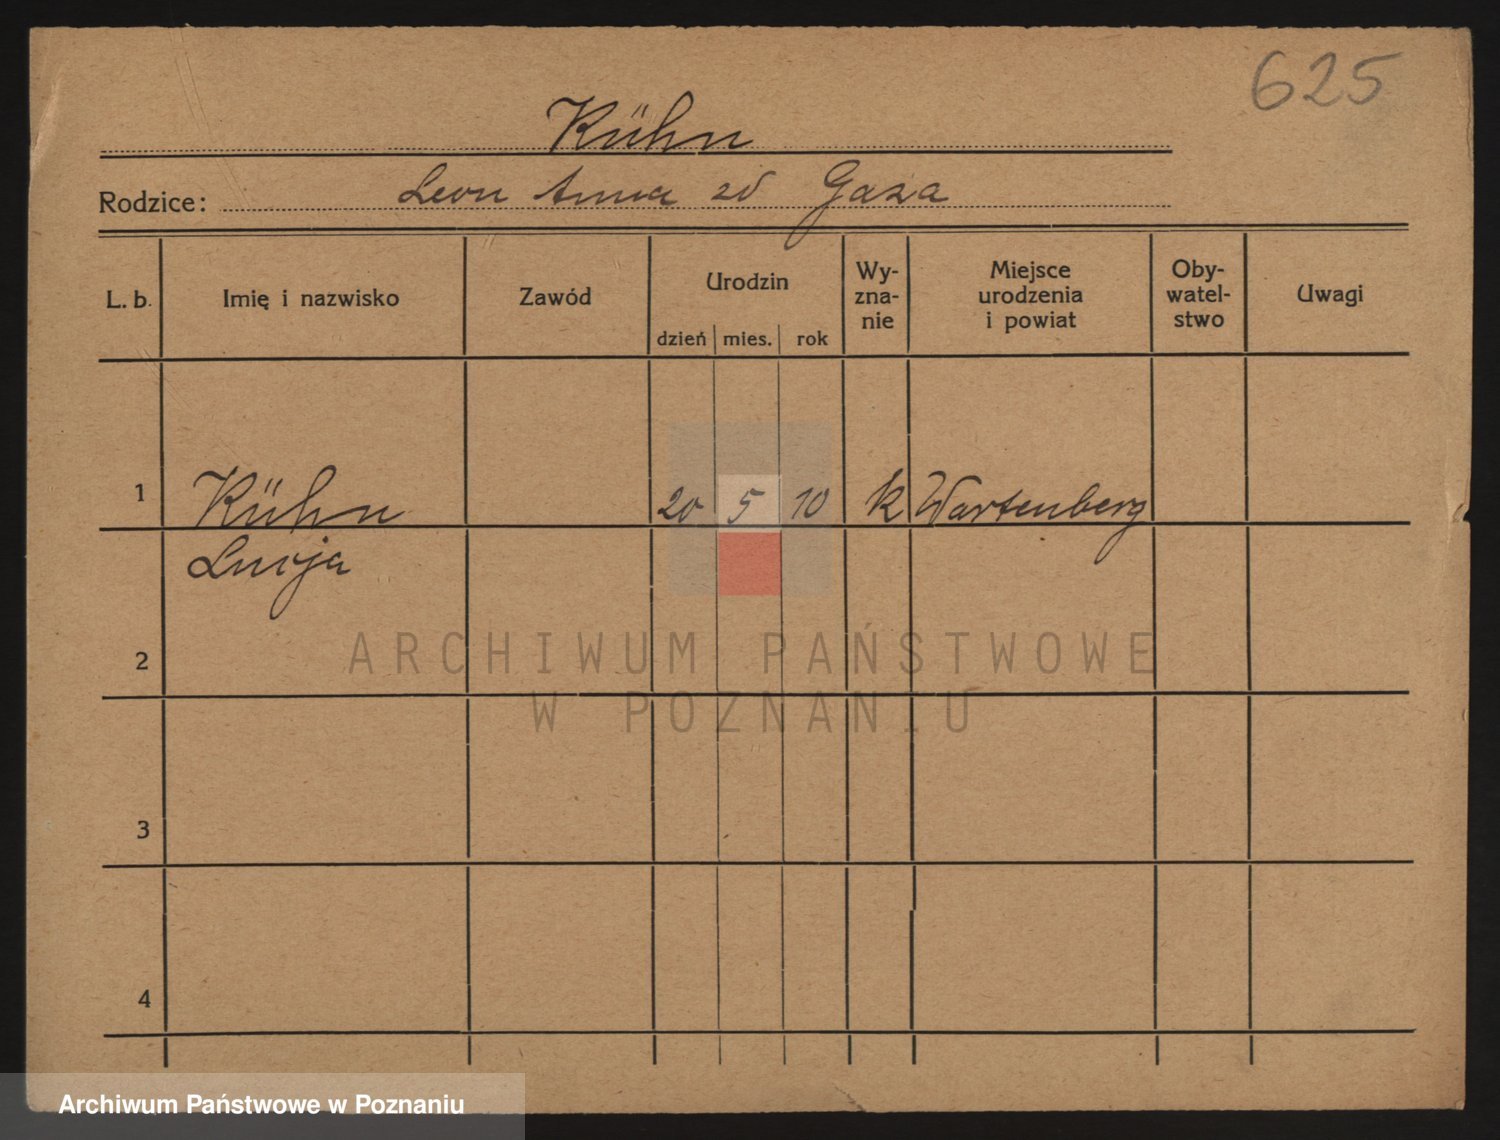 625
Kühn
Rodzice: Leon Anna zd Gaza
L. b.
Imię i nazwisko
Zawód
Urodzin
dzień mies. rok
Wy-
zna-
nie
Miejsce
urodzenia
i powiat
Oby-
watel-
stwo
Uwagi
1 Kühn 20 5 10 k Wartenberg
Lucja
2
ARCHIWUM PAŃSTWOWE
W POZNANIU
3
4
Archiwum Państwowe w Poznaniu